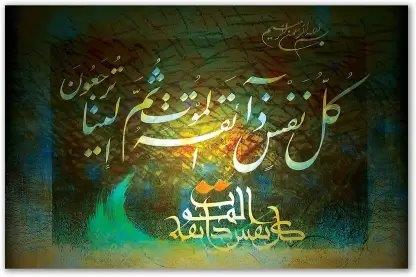 بسم الله الرحمن الرحيم
كُلُّ نَفْسٍ ذَآئِقَةُ المَوْتِ ثُمَّ إِلَيْنَا تُرْجَعُونَ
كل نفس ذائقة الموت